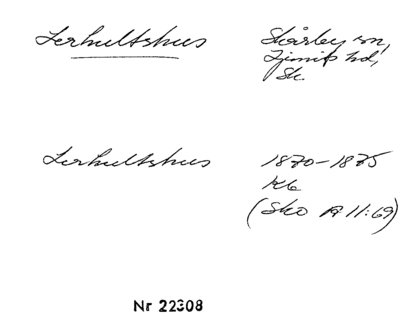 Lerhultshus Skårby sn,
Ljunits hd,
Sk.
Lerhultshus 1870-1875
Klb
(Sko A II:69)
Nr 22308